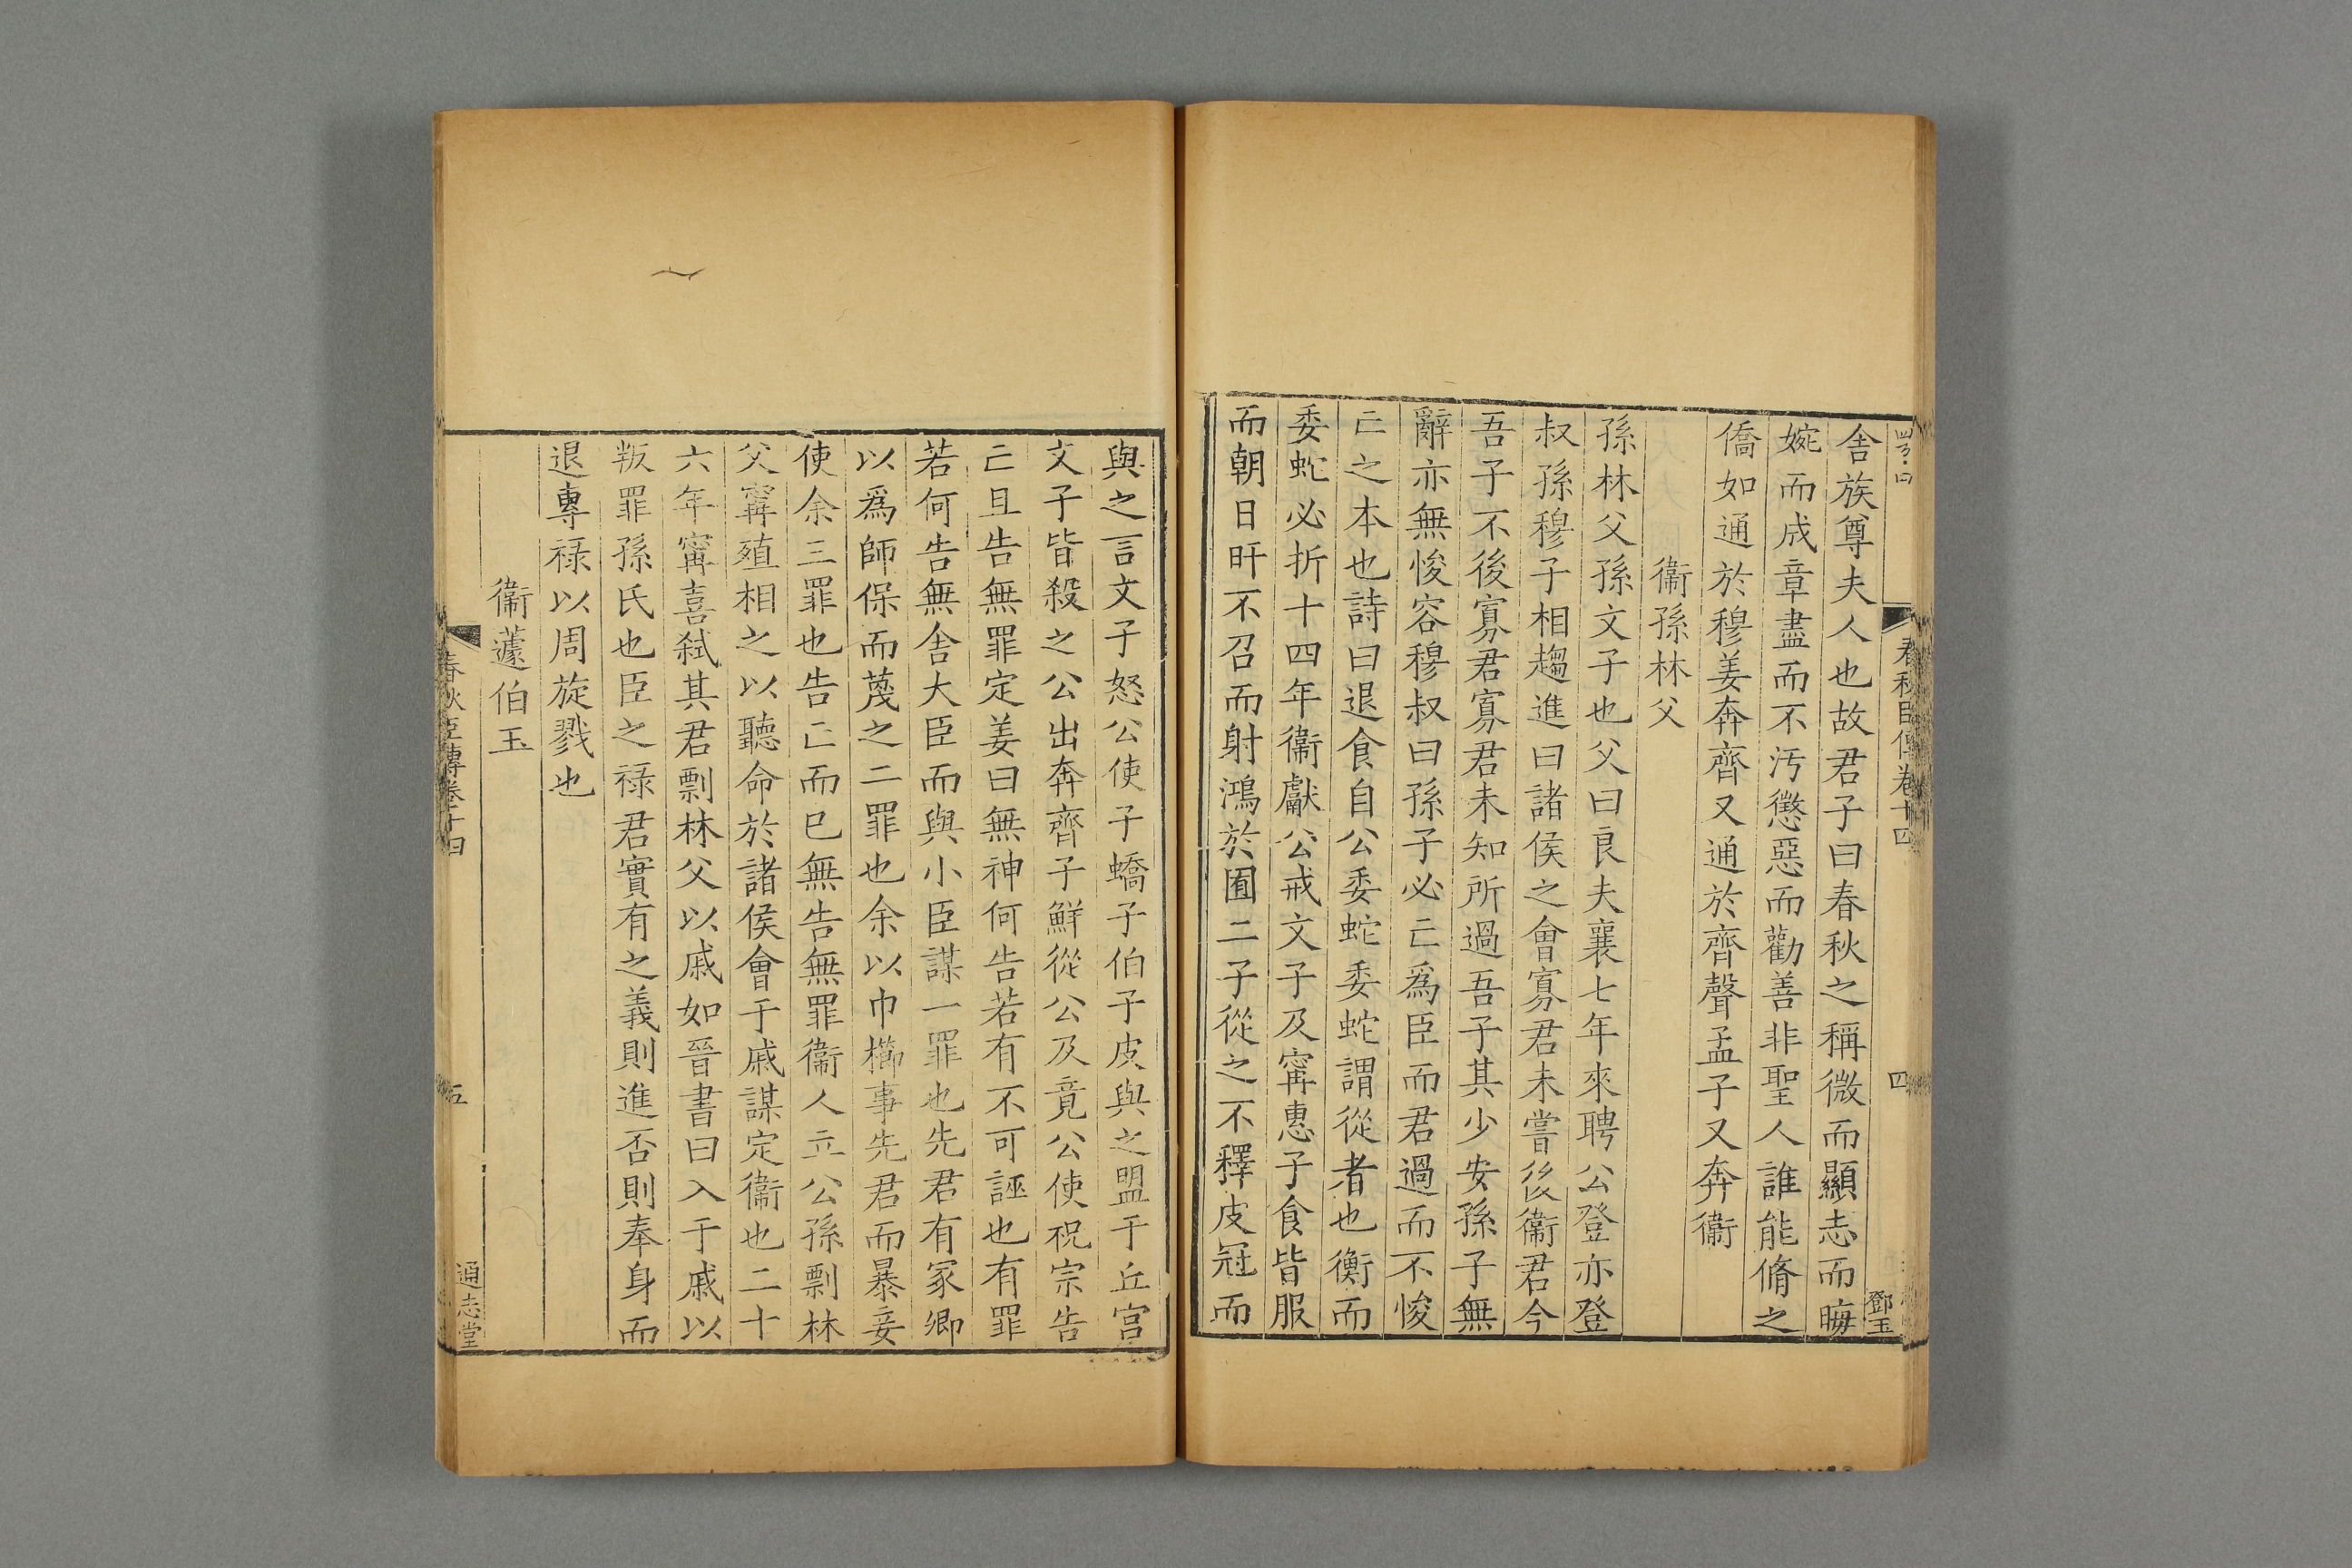 春秋臣傳卷十四
四
鄧玉
舍族尊夫人也故君子曰春秋之稱微而顯志而晦
婉而成章盡而不汚懲惡而勸善非聖人誰能脩之
僑如通於穆姜奔齊又通於齊聲孟子又奔衞
衞孫林父
孫林父孫文子也父曰良夫襄七年來聘公登亦登
叔孫穆子相趨進曰諸侯之會寡君未嘗後衞君今
吾子不後寡君寡君未知所過吾子其少安孫子無
辭亦無悛容穆叔曰孫子必亡爲臣而君過而不悛
亡之本也詩曰退食自公委蛇委蛇謂從者也衡而
委蛇必折十四年衞獻公戒文子及甯惠子食皆服
而朝日旰不召而射鴻於囿二子從之不釋皮冠而
與之言文子怒公使子蟜子伯子皮與之盟于丘宮
文子皆殺之公出奔齊子鮮從公及竟公使祝宗告
亡且告無罪定姜曰無神何告若有不可誣也有罪
若何告無舍大臣而與小臣謀一罪也先君有冢卿
以爲師保而蔑之二罪也余以巾櫛事先君而暴妾
使余三罪也告亡而已無告無罪衞人立公孫剽林
父甯殖相之以聽命於諸侯會于戚謀定衞也二十
六年甯喜弒其君剽林父以戚如晉書曰入于戚以
叛罪孫氏也臣之祿君實有之義則進否則奉身而
退專祿以周旋戮也
衞蘧伯玉
春秋臣傳卷十四
五
通志堂